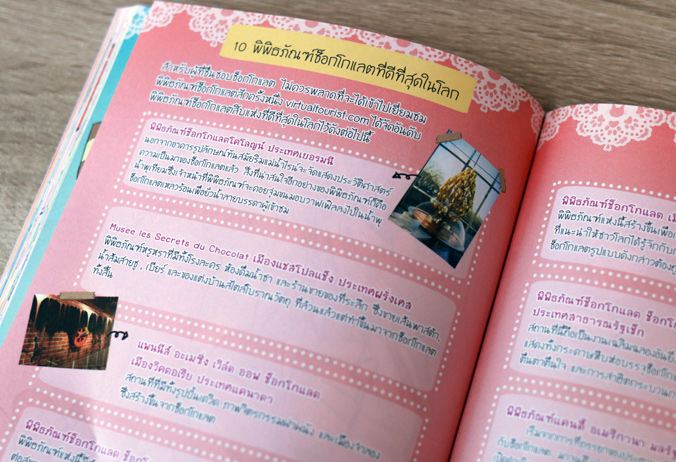 10 พิพิธภัณฑ์ช็อกโกแลตที่ดีที่สุดในโลก
สำหรับผู้ที่ชื่นชอบช็อกโกแลต ไม่ควรพลาดที่จะได้เข้าไปเยี่ยมชม
พิพิธภัณฑ์ช็อกโกแลตสักครั้งหนึ่ง virtualtourist.com ได้จัดอันดับ
พิพิธภัณฑ์ช็อกโกแลตสิบแห่งที่ดีที่สุดในโลกไว้ดังต่อไปนี้
พิพิธภัณฑ์ช็อกโกแลตโคโลญน์ ประเทศเยอรมนี
นอกจากอาคารรูปลักษณ์ทันสมัยริมแม่น้ำไรน์จะจัดแสดงประวัติศาสตร์
ความเป็นมาของช็อกโกแลตแล้ว สิ่งที่น่าสนใจอีกอย่างของพิพิธภัณฑ์ก็คือ
น้ำพุเทียมซึ่งเจ้าหน้าที่พิพิธภัณฑ์จะคอยจุ่มขนมอบวาฟเฟิลลงไปในน้ำพุ
ช็อกโกแลตเหลวร้อนเพื่อยั่วน้ำลายบรรดาผู้เข้าชม
Musee les Secrets du Chocolat เมืองแชสโปลแช็ง ประเทศฝรั่งเศส
พิพิธภัณฑ์หรูหราที่มีทั้งโรงละคร ห้องดื่มน้ำชา และร้านขายของที่ระลึก ซึ่งขายเส้นพาสต้า,
น้ำส้มสายชู, เบียร์ และของแต่งบ้านสไตล์โบราณวัตถุ ที่ล้วนแล้วแต่ทำขึ้นมาจากช็อกโกแลต
ทั้งสิ้น
แพนนีส์ อะเมซิ่ง เวิล์ด ออฟ ช็อกโกแลต
เมืองวิคตอเรีย ประเทศแคนาดา
สถานที่ที่มีทั้งรูปปั้นเดวิด ภาพจิตรกรรมฝาผนัง และเมืองจำลอง
ซึ่งสร้างขึ้นจากช็อกโกแลต
พิพิธภัณฑ์ช็อกโกแลต ช็อก
พิพิธภัณฑ์แห่งนี้
พิพิธภัณฑ์ช็อกโกแลต
พิพิธภัณฑ์แห่งนี้สร้างขึ้นเพื่อ
ที่แนะนำให้ชาวโลกได้รู้จักกับ
ช็อกโกแลตรูปแบบดังกล่าวต้อง
พิพิธภัณฑ์ช็อกโกแลต ช็อกโก
ประเทศสาธารณรัฐเช็ก